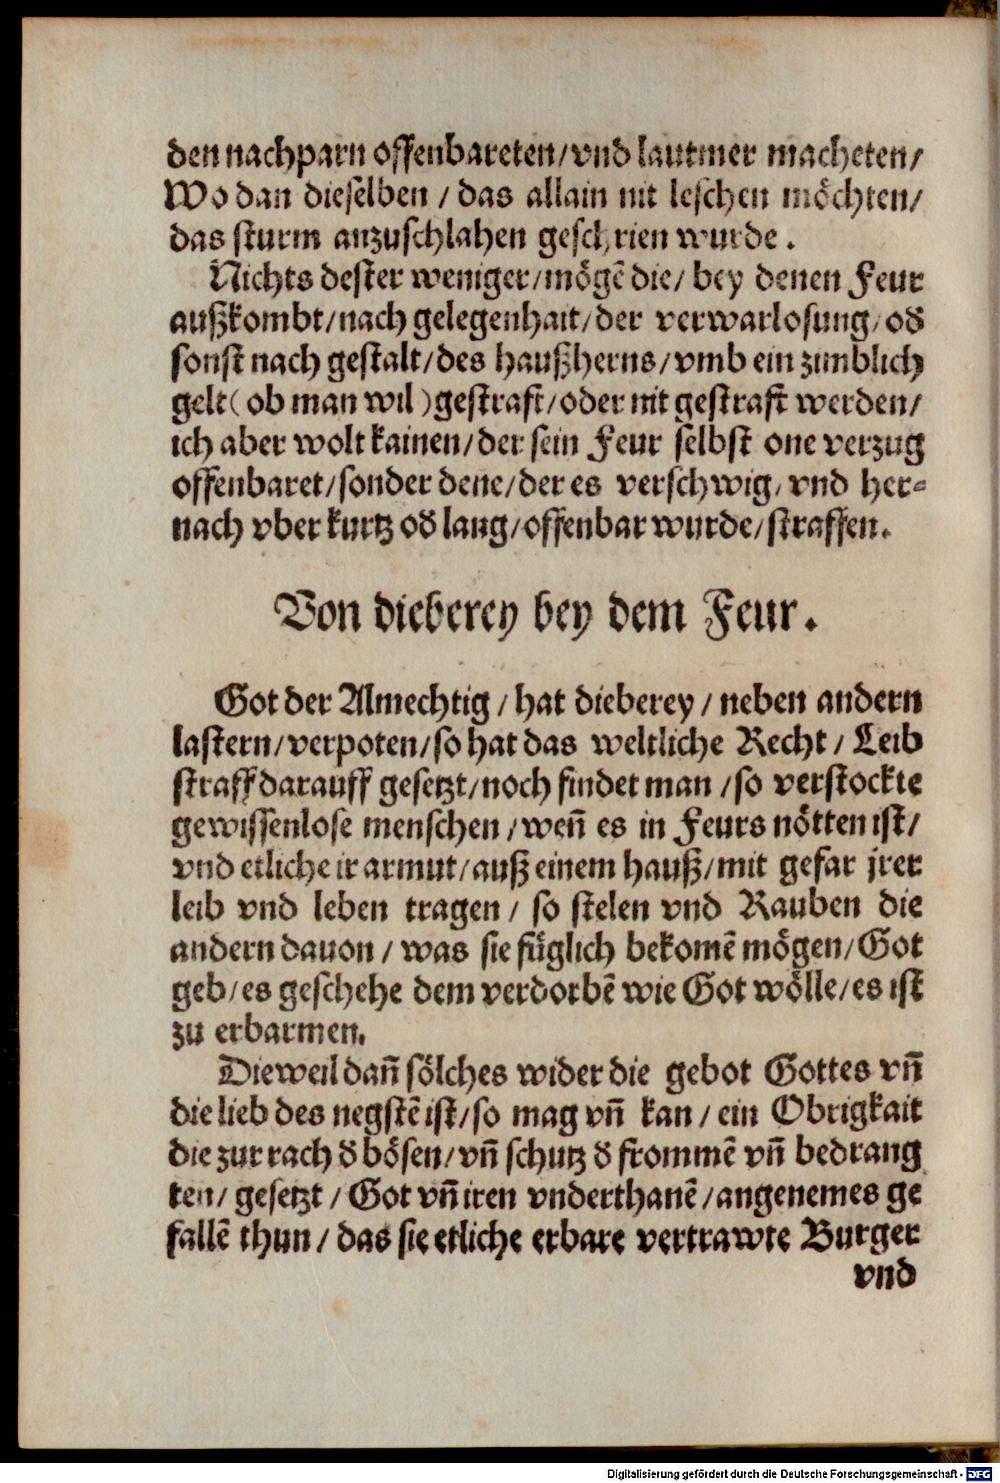 den nachparn offenbareten/vnd lautmer macheten/
Wo dan dieselben / das allain nit leschen möchten/
das sturm anzuschlahen geschrien wurde.
Nichts dester weniger/mögē die/ bey denen Feur
außkombt/nach gelegenhait/der verwarlosung/od
sonst nach gestalt/des haußherns/vmb ein zimblich
gelt( ob man wil )gestraft/oder nit gestraft werden/
ich aber wolt kainen/der sein Feur selbst one verzug
offenbaret/sonder dene/der es verschwig/vnd her-
nach vber kurtz od lang/offenbar wurde/straffen.
Von dieberey bey dem Feur.
Got der Almechtig / hat dieberey / neben andern
lastern/verpoten/so hat das weltliche Recht / Leib
straff darauff gesetzt/noch findet man /so verstockte
gewissenlose menschen /weñ es in Feurs nötten ist/
vnd etliche ir armut/auß einem hauß/mit gefar jrer
leib vnd leben tragen / so stelen vnd Rauben die
andern dauon / was sie füglich bekomē mögen/Got
geb/es geschehe dem verdorbē wie Got wölle/es ist
zu erbarmen.
Dieweil dañ sölches wider die gebot Gottes vñ
die lieb des negstē ist/so mag vñ kan / ein Obrigkait
die zur rach d bösen/vñ schutz d frommē vñ bedrang
ten/ gesetzt / Got vñ iren vnderthanē /angenemes ge
fallē thun / das sie etliche erbare vertrawte Burger
vnd
Digitalisierung gefördert durch die Deutsche Forschungsgemeinschaft - DFG